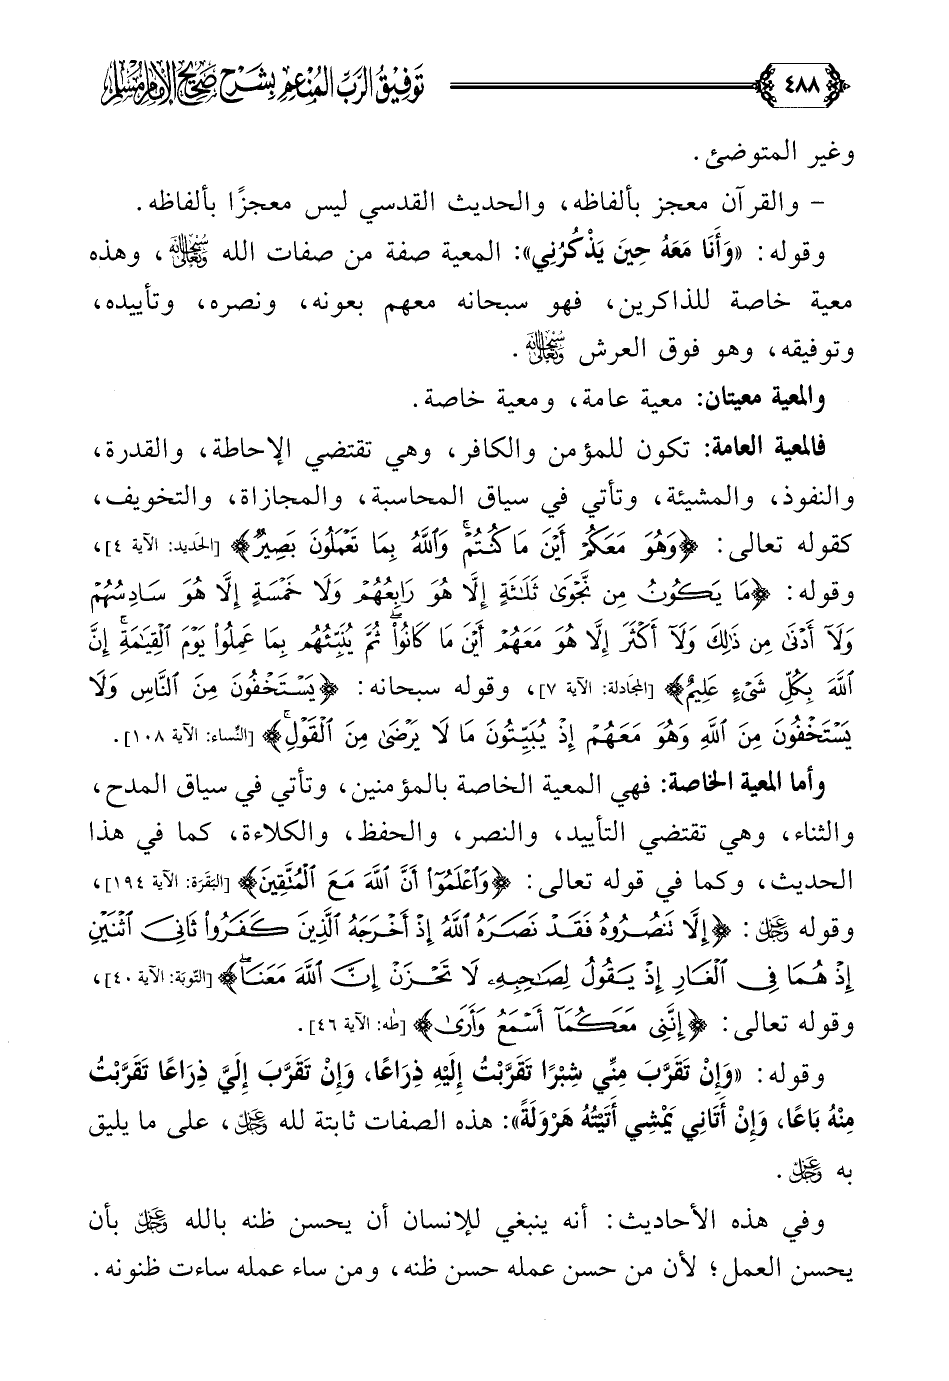 ٤٨٨ توفيق الرب المنعم بشرح صحيح الإمام مسلم
وغير المتوضئ.
- والقرآن معجز بألفاظه، والحديث القدسي ليس معجزًا بألفاظه.
وقوله: «وَأَنَا مَعَهُ حِينَ يَذْكُرُنِي»: المعية صفة من صفات الله سُبْحَانَهُ وَتَعَالَى، وهذه
معية خاصة للذاكرين، فهو سبحانه معهم بعونه، ونصره، وتأييده،
وتوفيقه، وهو فوق العرش سُبْحَانَهُ وَتَعَالَى.
والمعية معيتان: معية عامة، ومعية خاصة.
فالمعية العامة: تكون للمؤمن والكافر، وهي تقتضي الإحاطة، والقدرة،
والنفوذ، والمشيئة، وتأتي في سياق المحاسبة، والمجازاة، والتخويف،
كقوله تعالى: ﴿وَهُوَ مَعَكُمْ أَيْنَ مَا كُنتُمْۚ وَٱللَّهُ بِمَا تَعْمَلُونَ بَصِيرٌ﴾ [الحديد: الآية ٤]،
وقوله: ﴿مَا يَكُونُ مِن نَّجْوَىٰ ثَلَٰثَةٍ إِلَّا هُوَ رَابِعُهُمْ وَلَا خَمْسَةٍ إِلَّا هُوَ سَادِسُهُمْ
وَلَآ أَدْنَىٰ مِن ذَٰلِكَ وَلَآ أَكْثَرَ إِلَّا هُوَ مَعَهُمْ أَيْنَ مَا كَانُوا۟ۖ ثُمَّ يُنَبِّئُهُم بِمَا عَمِلُوا۟ يَوْمَ ٱلْقِيَٰمَةِۚ إِنَّ
ٱللَّهَ بِكُلِّ شَىْءٍ عَلِيمٌ﴾ [المجادلة: الآية ٧]، وقوله سبحانه: ﴿يَسْتَخْفُونَ مِنَ ٱلنَّاسِ وَلَا
يَسْتَخْفُونَ مِنَ ٱللَّهِ وَهُوَ مَعَهُمْ إِذْ يُبَيِّتُونَ مَا لَا يَرْضَىٰ مِنَ ٱلْقَوْلِۚ﴾ [النِّساء: الآية ١٠٨].
وأما المعية الخاصة: فهي المعية الخاصة بالمؤمنين، وتأتي في سياق المدح،
والثناء، وهي تقتضي التأييد، والنصر، والحفظ، والكلاءة، كما في هذا
الحديث، وكما في قوله تعالى: ﴿وَٱعْلَمُوٓا۟ أَنَّ ٱللَّهَ مَعَ ٱلْمُتَّقِينَ﴾ [البَقَرَة: الآية ١٩٤]،
وقوله عَزَّ وَجَلَّ: ﴿إِلَّا تَنصُرُوهُ فَقَدْ نَصَرَهُ ٱللَّهُ إِذْ أَخْرَجَهُ ٱلَّذِينَ كَفَرُوا۟ ثَانِىَ ٱثْنَيْنِ
إِذْ هُمَا فِى ٱلْغَارِ إِذْ يَقُولُ لِصَٰحِبِهِۦ لَا تَحْزَنْ إِنَّ ٱللَّهَ مَعَنَاۖ﴾ [التّوبَة: الآية ٤٠]،
وقوله تعالى: ﴿إِنَّنِى مَعَكُمَآ أَسْمَعُ وَأَرَىٰ﴾ [طه: الآية ٤٦].
وقوله: «وَإِنْ تَقَرَّبَ مِنِّي شِبْرًا تَقَرَّبْتُ إِلَيْهِ ذِرَاعًا، وَإِنْ تَقَرَّبَ إِلَيَّ ذِرَاعًا تَقَرَّبْتُ
مِنْهُ بَاعًا، وَإِنْ أَتَانِي يَمْشِي أَتَيْتُهُ هَرْوَلَةً»: هذه الصفات ثابتة لله عَزَّ وَجَلَّ، على ما يليق
به عَزَّ وَجَلَّ.
وفي هذه الأحاديث: أنه ينبغي للإنسان أن يحسن ظنه بالله عَزَّ وَجَلَّ بأن
يحسن العمل؛ لأن من حسن عمله حسن ظنه، ومن ساء عمله ساءت ظنونه.